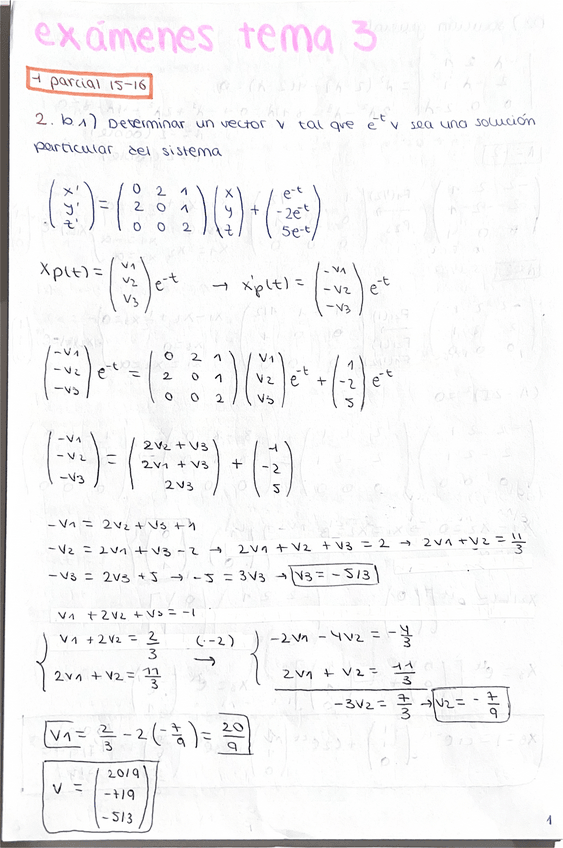 exámenes tema 3
1 parcial 15-16
2. b1) Determinar un vector v tal que e^-t v sea una solución
particular del sistema
(x' y' z') = (0 2 1 / 2 0 1 / 0 0 2) (x y z) + (e^-t -2e^-t 5e^-t)
Xp(t) = (v1 v2 v3) e^-t → x'p(t) = (-v1 -v2 -v3) e^-t
(-v1 -v2 -v3) e^-t = (0 2 1 / 2 0 1 / 0 0 2) (v1 v2 v3) e^-t + (1 -2 5) e^-t
(-v1 -v2 -v3) = (2v2 + v3 / 2v1 + v3 / 2v3) + (1 -2 5)
-v1 = 2v2 + v3 + 1
-v2 = 2v1 + v3 - 2 → 2v1 + v2 + v3 = 2 → 2v1 + v2 = 11/3
-v3 = 2v3 + 5 → -5 = 3v3 → v3 = -5/3
v1 + 2v2 + v3 = -1
{ v1 + 2v2 = 2/3 (·-2) → { -2v1 - 4v2 = -4/3
2v1 + v2 = 11/3 2v1 + v2 = 11/3
-3v2 = 7/3 → v2 = -7/9
v1 = 2/3 - 2(-7/9) = 20/9
v = (20/9 -7/9 -5/3)
1